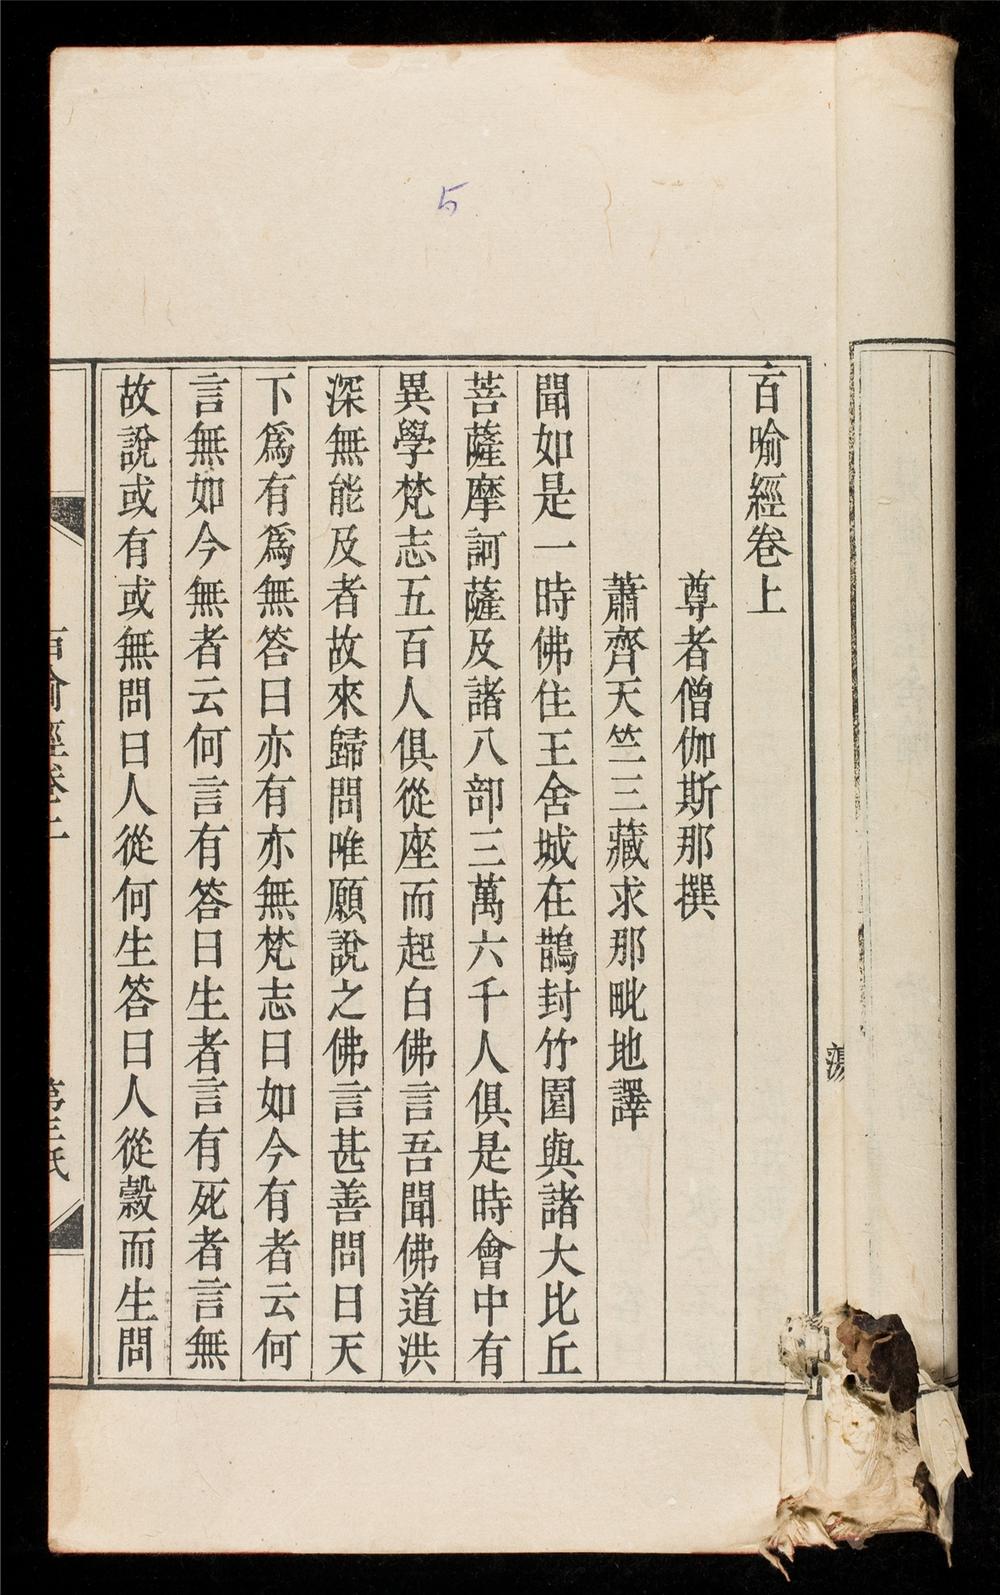 5
百喻經卷上
尊者僧伽斯那撰
蕭齊天竺三藏求那毗地譯
聞如是一時佛住王舍城在鵲封竹園與諸大比丘
菩薩摩訶薩及諸八部三萬六千人俱是時會中有
異學梵志五百人俱從座而起白佛言吾聞佛道洪
深無能及者故來歸問唯願說之佛言甚善問曰天
下爲有爲無答曰亦有亦無梵志曰如今有者云何
言無如今無者云何言有答曰生者言有死者言無
故說或有或無問曰人從何生答曰人從穀而生問
百喻經卷上